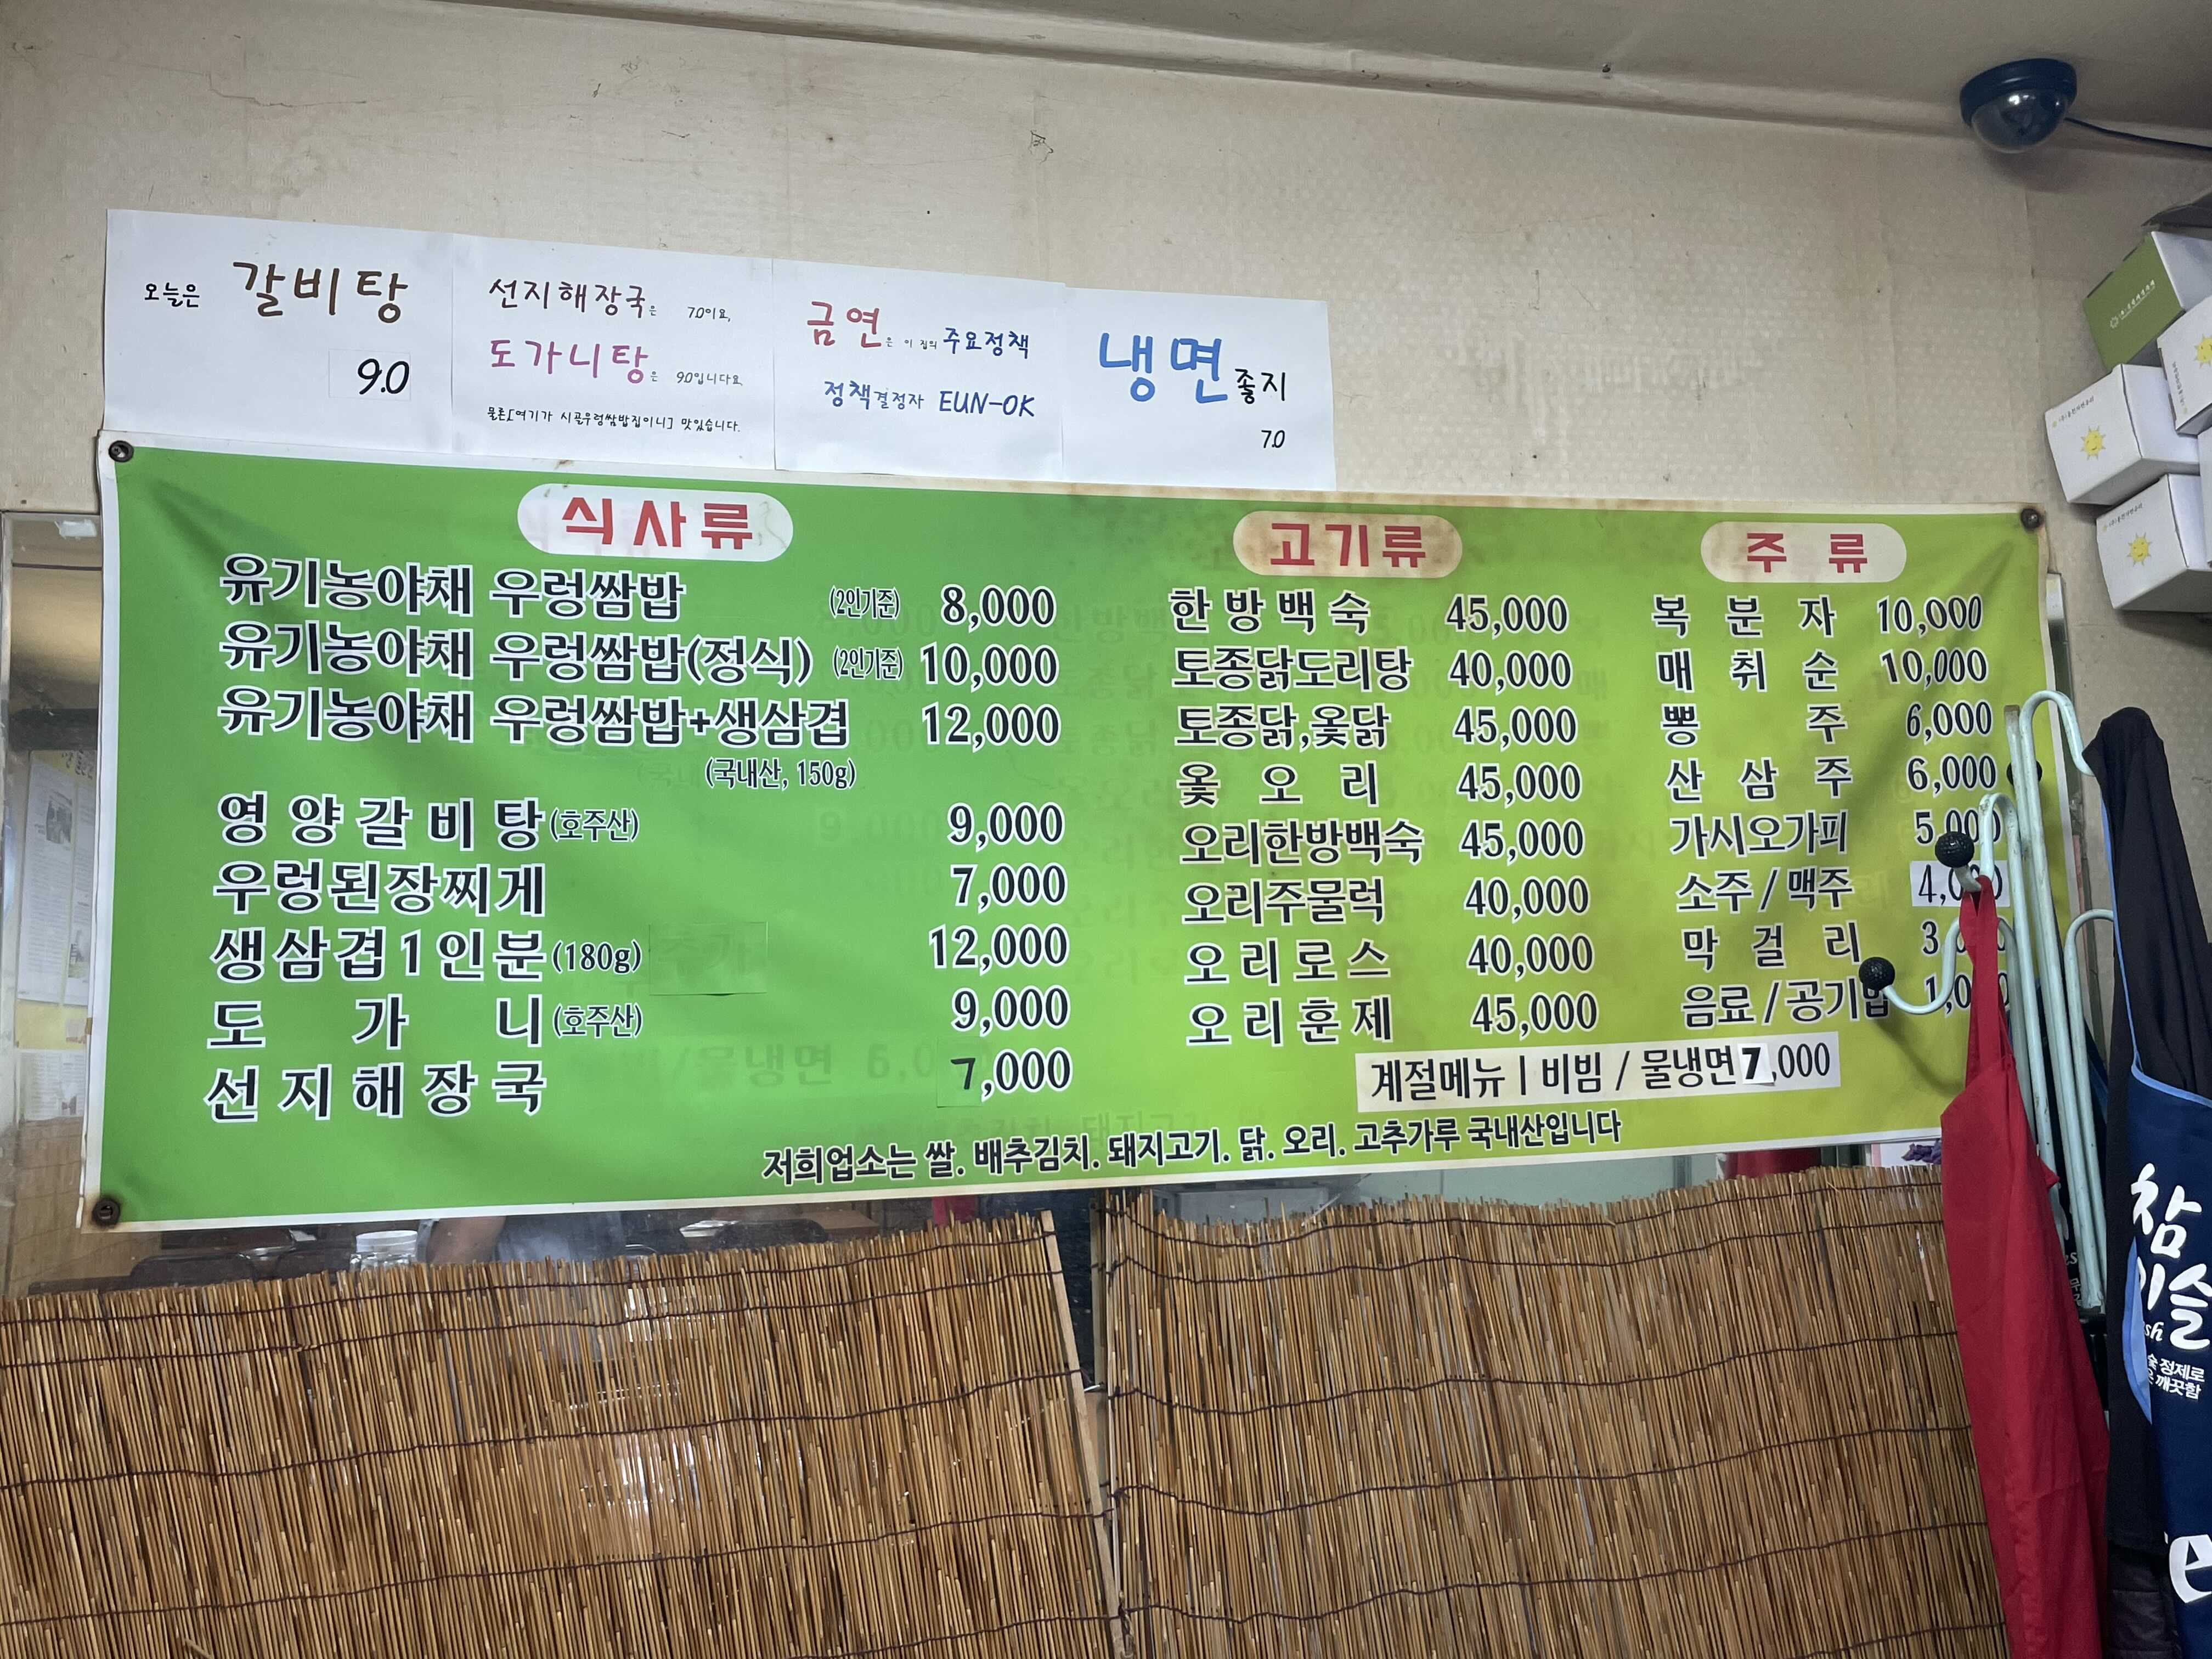 오늘은 갈비탕
9.0
선지해장국은 7.0이요,
도가니탕은 9.0입니다요
물론[여기가 시골우렁쌈밥집이니] 맛있습니다.
금연은 이 집의 주요정책
정책결정자 EUN-OK
냉면좋지
7.0
식사류
유기농야채 우렁쌈밥 (2인기준) 8,000
유기농야채 우렁쌈밥(정식) (2인기준) 10,000
유기농야채 우렁쌈밥+생삼겹 12,000
(국내산, 150g)
영양갈비탕(호주산) 9,000
우렁된장찌게 7,000
생삼겹1인분(180g) 12,000
도가니(호주산) 9,000
선지해장국 7,000
고기류
한방백숙 45,000
토종닭도리탕 40,000
토종닭,옻닭 45,000
옻오리 45,000
오리한방백숙 45,000
오리주물럭 40,000
오리로스 40,000
오리훈제 45,000
주류
복분자 10,000
매취순 10,000
뽕주 6,000
산삼주 6,000
가시오가피 5,000
소주/맥주
막걸리
음료/공기밥
계절메뉴 | 비빔 / 물냉면 7,000
저희업소는 쌀. 배추김치. 돼지고기. 닭. 오리. 고추가루 국내산입니다
참
이슬